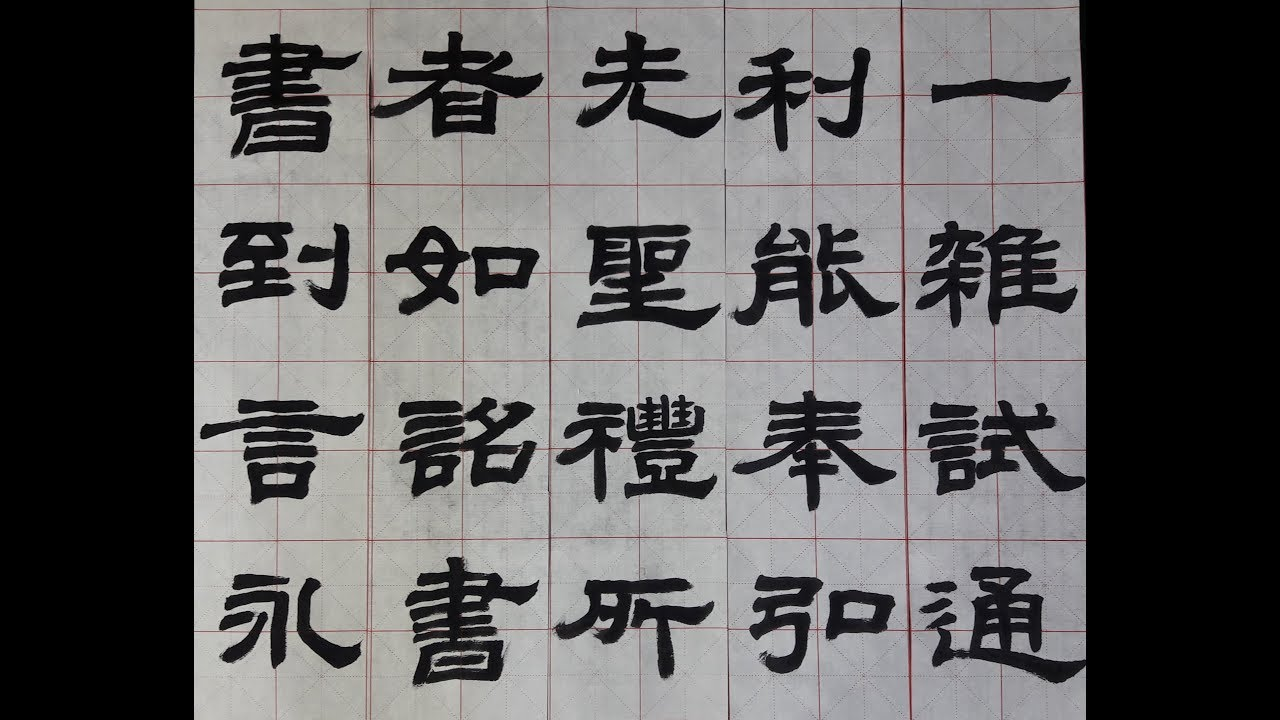 一雜試通
利能奉弘
先聖禮所
者如詔書
書到言永